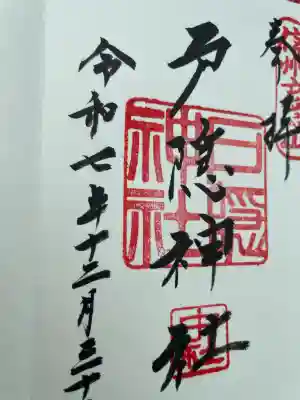 奉拝
戸隠神社
戸隠神社
中社
令和七年十二月三十